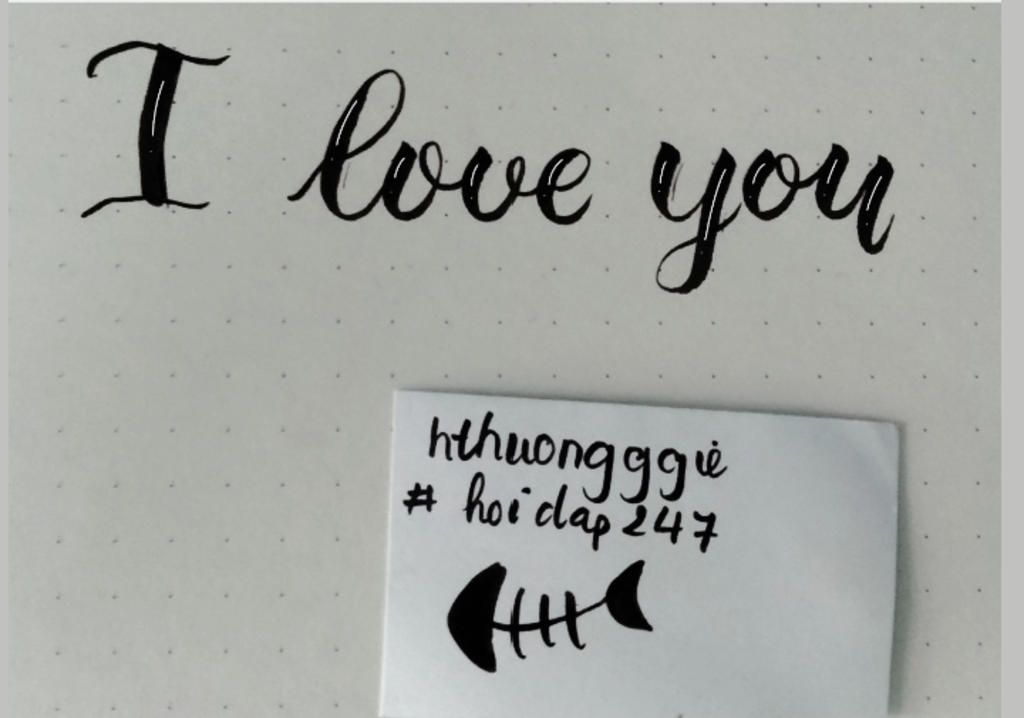 I love you
hthuongggiè
# hoidap247